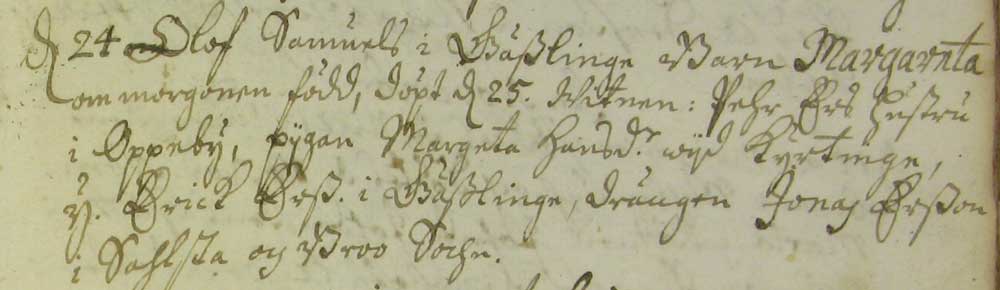 d 24 Olof Samuels i Gäßlinge Barn Margareta
om morgonen född, döpt d 25. Witnen: Pehr Ers Hustru
i Oppeby, pÿgan Margeta Hansd:r wijd Kyrtinge,
Erick Erß. i Gäßlinge, drängen Jonas Erßon
i Sahlsta og Broo Sochn.